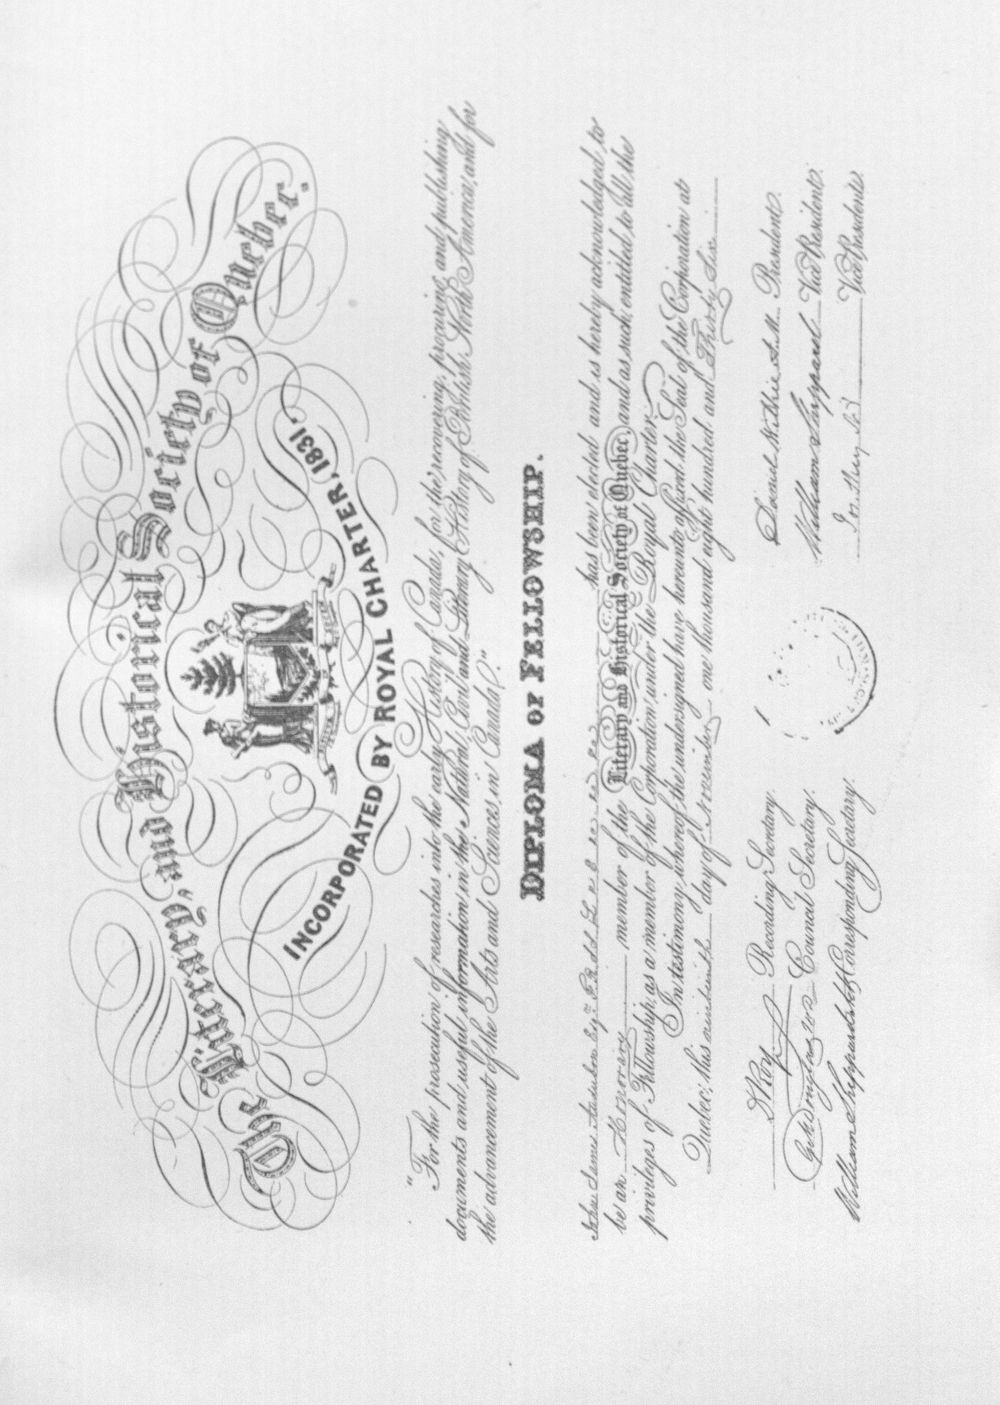 The Literary, and Historical Society of Quebec.
INCORPORATED BY ROYAL CHARTER, 1831.
"For the prosecution of researches into the early History of Canada, for the recovering, procuring, and publishing
documents and useful information, in the Natural, Civil and Literary History of British North America, and for
the advancement of the Arts and Sciences, in Canada."
DIPLOMA OF FELLOWSHIP.
John James Audubon Esqr. has been elected and is hereby acknowledged to
be an Honorary member of the Literary and Historical Society of Quebec, and as such, entitled to all the
privileges of Fellowship, as a member of the Corporation under the Royal Charter.
In testimony whereof, the undersigned have hereunto affixed the Seal of the Corporation at
Quebec, this day of November one thousand eight hundred and Thirty Six
Recording Secretary.
Council Secretary.
William Sheppard Corresponding Secretary.
President.
William Sheppard Vice President.
Vice President.